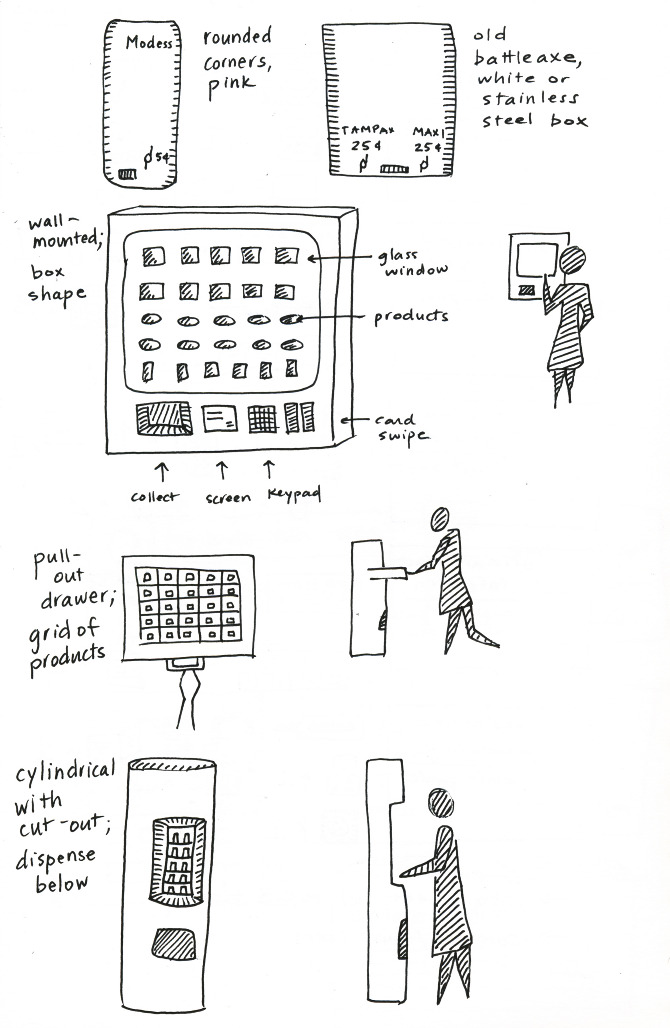 Modess
rounded
corners,
pink
5¢
old
battleaxe,
white or
stainless
steel box
TAMPAX MAXI
25¢ 25¢
wall-
mounted;
box
shape
glass
window
products
card
swipe
collect screen keypad
pull-
out
drawer;
grid of
products
cylindrical
with
cut-out;
dispense
below